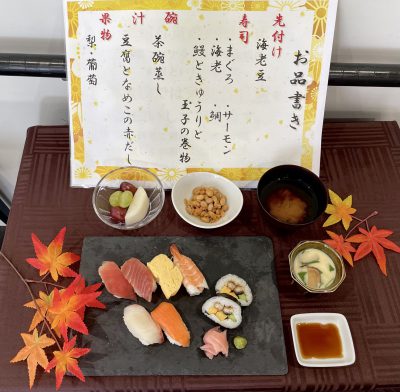 お品書き
先付け
海老豆
寿司
・まぐろ ・サーモン
・海老 ・鯛
・鰻ときゅうりと
玉子の巻物
椀
茶碗蒸し
汁
豆腐となめこの赤だし
果物
梨・葡萄